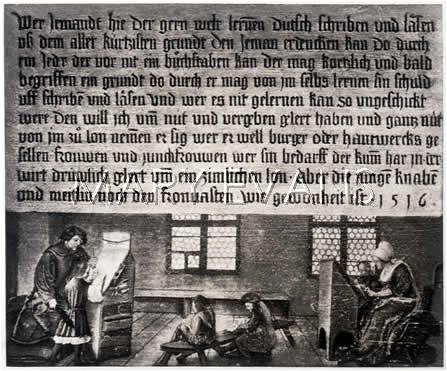 Wer Jemandt hie der gern welt lernen Dutsch schriben und läsen
uß dem aller kürtzisten grundt den Jeman erdencken kan Do durch
ein Jeder der vor nit ein büchstaben kan der mag kürtzlich und bald
begriffen ein grundt do durch er mag von jm selbs lernen sin schuld
uff schribē und läsen und wer es nit gelernen kan so ungeschickt
were Den will ich um̄ nut und vergeben gelert haben und gantz nut
von jm zů lon nemen er sig wer er well burger oder hantwercks ge
sellen frouwen und junckfrouwen wer sin bedarff der kum̄ har jn der
wirt drüwlich gelert um̄ ein zimlichen lon. Aber die junge knabē
und meitlin noch den fronvasten wie gewonheit ist 1516.
MARY EVANS